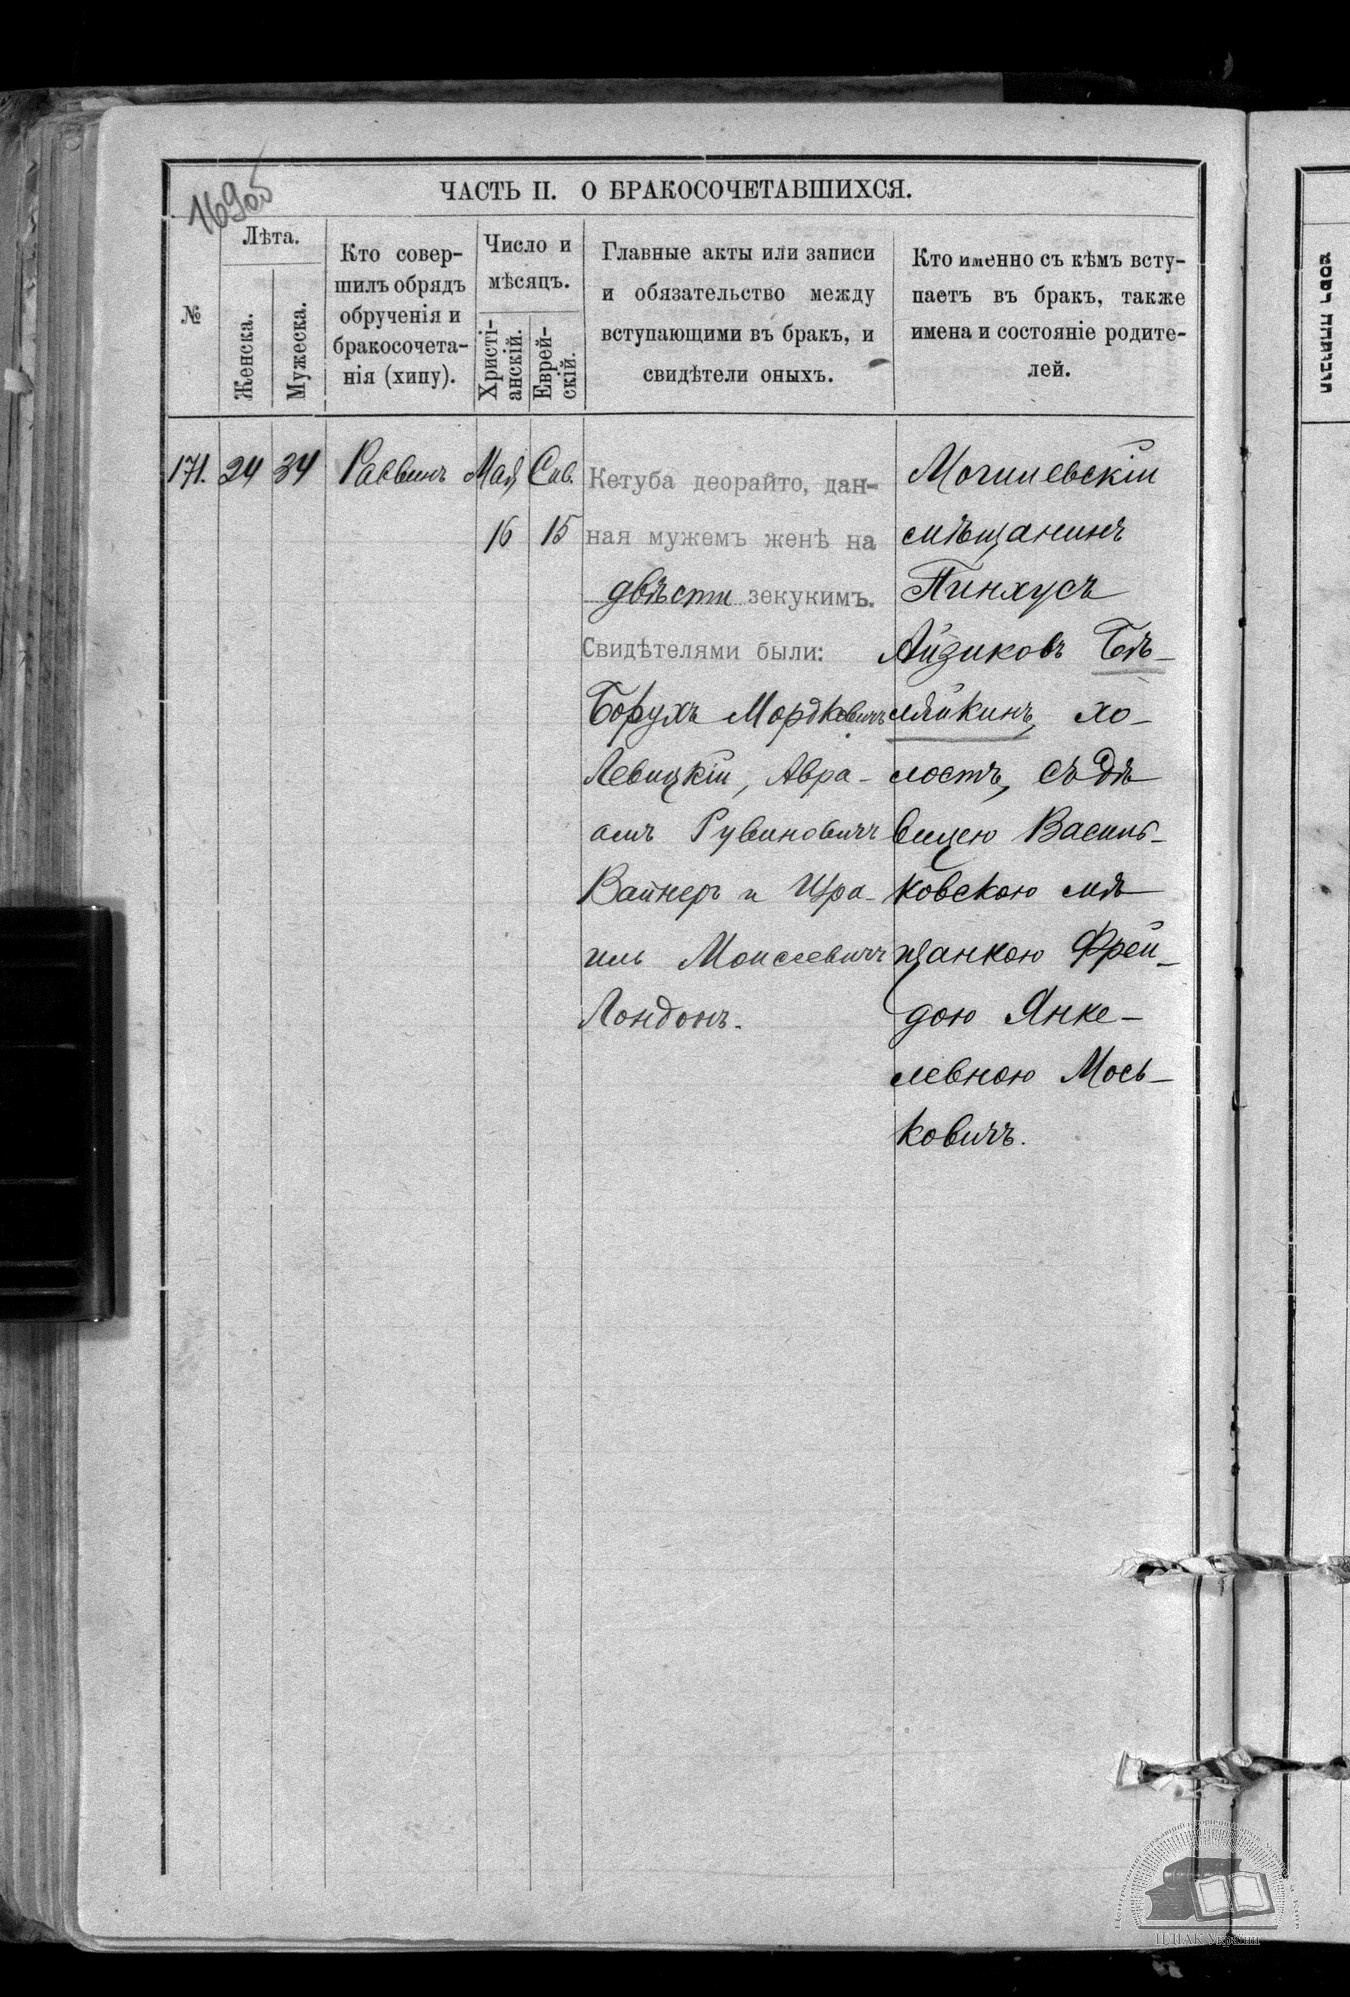 169об
ЧАСТЬ II. О БРАКОСОЧЕТАВШИХСЯ.
№
Лѣта.
Женска.
Мужеска.
Кто совер-
шилъ обрядъ
обрученія и
бракосочета-
нія (хипу).
Число и
мѣсяцъ.
Христі-
анскій.
Еврей-
скій.
Главные акты или записи
и обязательство между
вступающими въ бракъ, и
свидѣтели оныхъ.
Кто именно съ кѣмъ всту-
паетъ въ бракъ, также
имена и состояніе родите-
лей.
171.
24
34
Раввинъ
Мая
16
Сив.
15
Кетуба деорайто, дан-
ная мужемъ женѣ на
двѣсти зекукимъ.
Свидѣтелями были:
Борухъ Мордковичъ
Левицкій, Авра-
амъ Рувиновичъ
Вайнеръ и Изра-
иль Моисеевичъ
Лондонъ.
Могилевскій
мѣщанинъ
Пинхусъ
Айзиковъ Бѣ-
ляйкинъ, хо-
лостъ, съ дѣ
вицею Василь-
ковскою мѣ
щанкою Фрей-
дою Янке-
левною Мось-
ковичъ.
ЦДІАК України